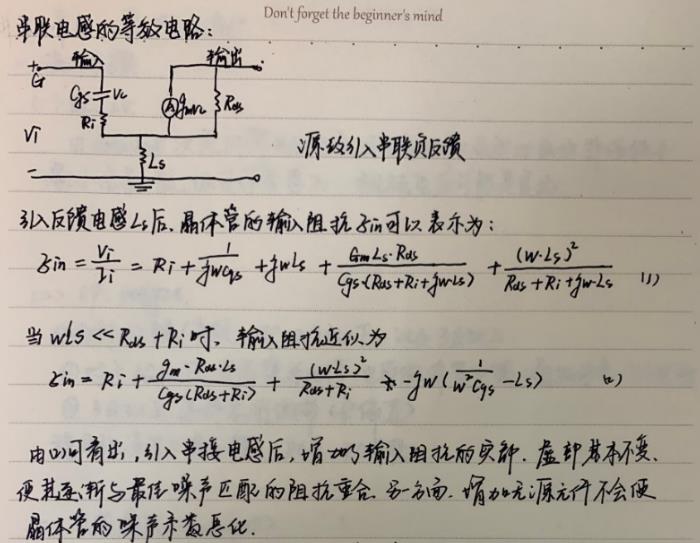 Don't forget the beginner's mind
串联电感的等效电路:
输入 输出
G Cgs Vc gmVc Rds
Ri
Vi
Ls
源极引入串联负反馈
引入反馈电感Ls后、晶体管的输入阻抗Zin可以表示为:
Zin = Vi/Ii = Ri + 1/jwCgs + jwLs + GmLs·Rds/Cgs·(Rds+Ri+jwLs) + (w·Ls)²/Rds+Ri+jw·Ls (1)
当wLs << Rds + Ri时, 输入阻抗近似为
Zin = Ri + gm·Rds·Ls/Cgs(Rds+Ri) + (w·Ls)²/Rds+Ri -jw(1/w²Cgs - Ls) (2)
由(2)可看出, 引入串接电感后, 增加了输入阻抗的实部. 虚部基本不变、
使其逐渐与最佳噪声匹配的阻抗重合. 另一方面. 增加无源元件不会使
晶体管的噪声系数恶化.